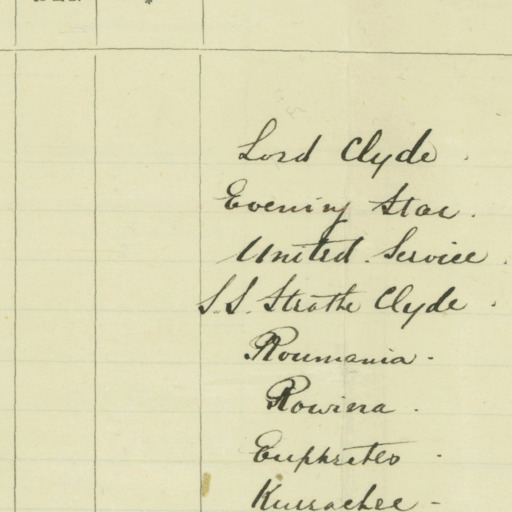 Lord Clyde.
Evening Star.
United Service.
S.S. Strathe Clyde.
Roumania.
Rowina.
Euphrates.
Kurrachee -